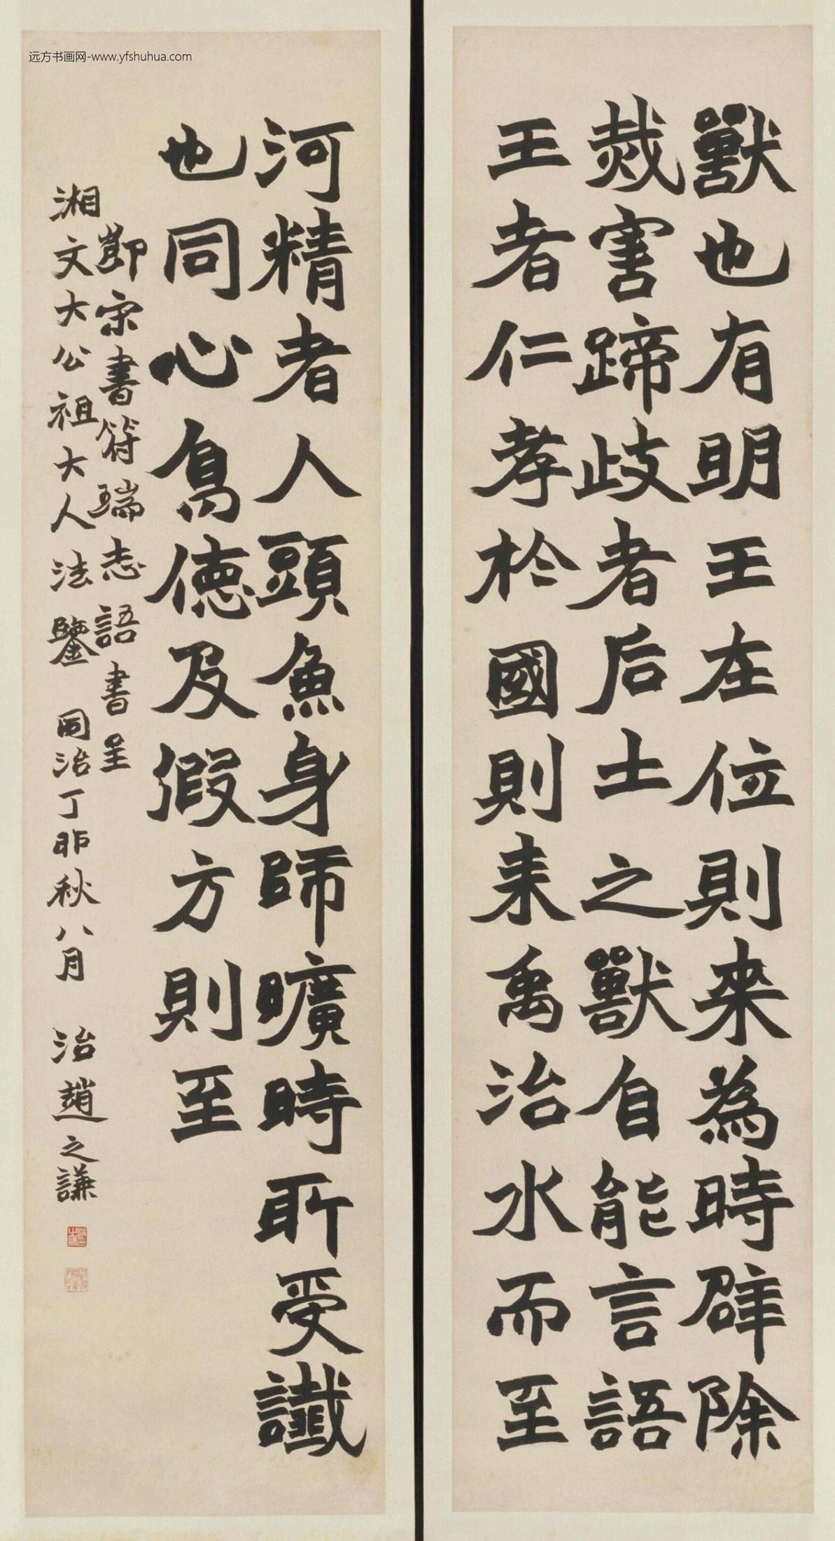 远方书画网-www.yfshuhua.com
獸也有明王在位則来為時辟除
烖害蹄歧者后土之獸自能言語
王者仁孝於國則来禹治水而至
河精者人頭魚身師曠時所受讖
也同心鳥德及假方則至
節宋書符瑞志語書呈
湘文大公祖大人法鑒 同治丁卯秋八月 治趙之謙